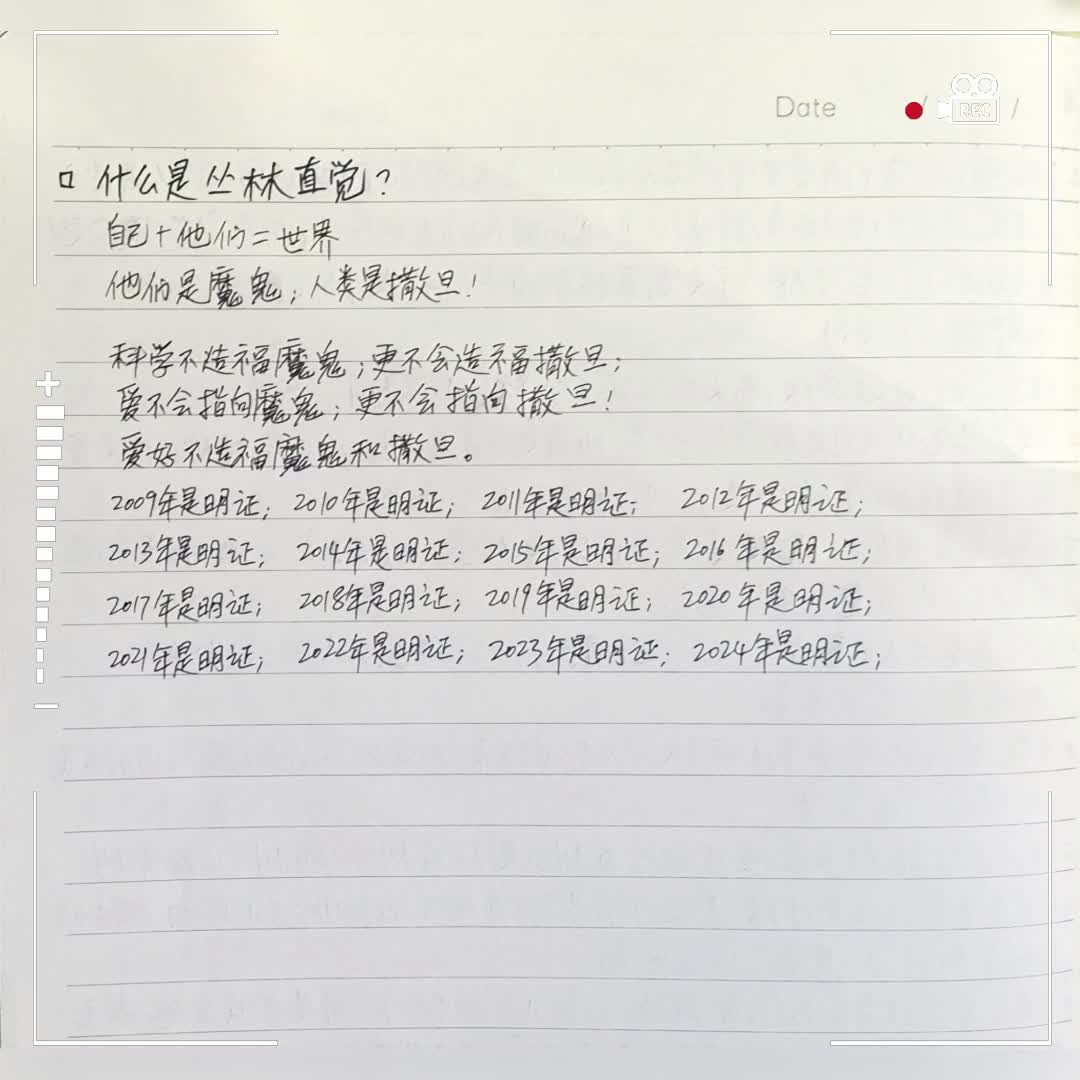 Date / /
REC
什么是丛林直觉?
自己+他们=世界
他们是魔鬼;人类是撒旦!
科学不造福魔鬼;更不会造福撒旦;
爱不会指向魔鬼;更不会指向撒旦!
爱好不造福魔鬼和撒旦。
2009年是明证; 2010年是明证; 2011年是明证; 2012年是明证;
2013年是明证; 2014年是明证; 2015年是明证; 2016年是明证;
2017年是明证; 2018年是明证; 2019年是明证; 2020年是明证;
2021年是明证; 2022年是明证; 2023年是明证; 2024年是明证;